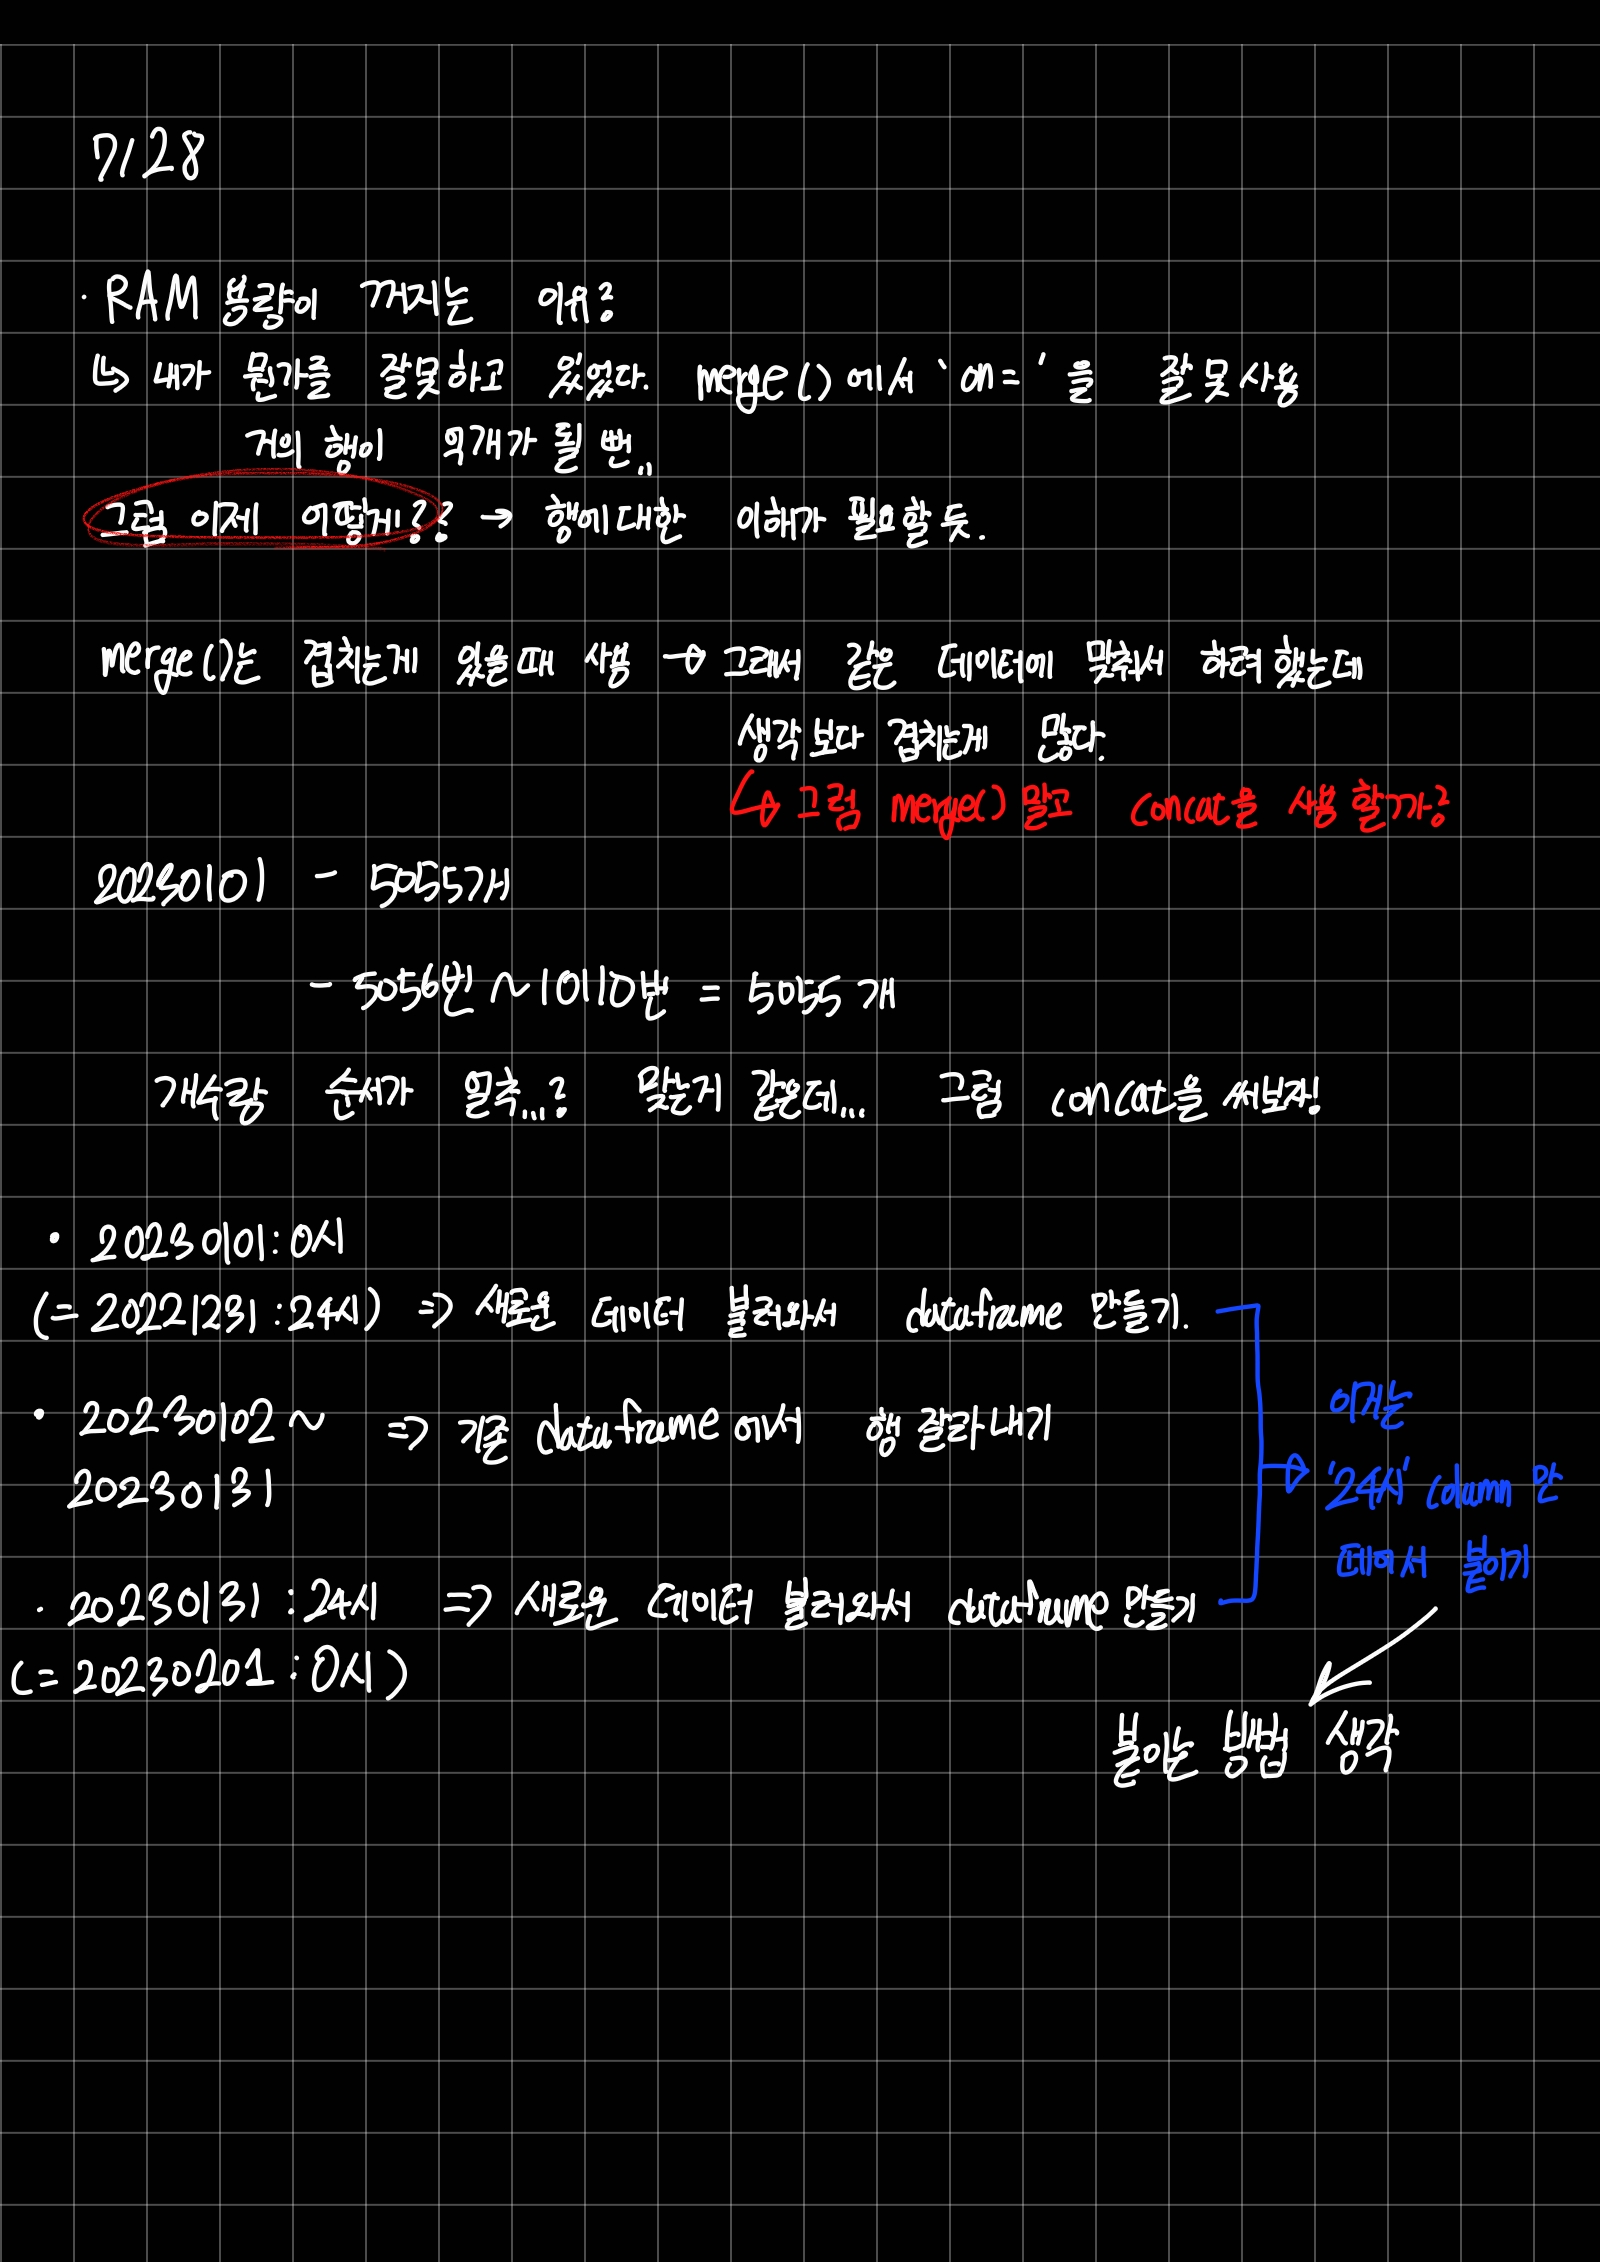 7/28
· RAM 용량이 꺼지는 이유?
↳ 내가 뭔가를 잘못하고 있었다. merge()에서 'on= '을 잘못 사용
거의 행이 억개가 될 뻔..
그럼 이제 어떻게?? → 행에 대한 이해가 필요할 듯.
merge()는 겹치는게 있을때 사용 → 그래서 같은 데이터에 맞춰서 하려 했는데
생각보다 겹치는게 많다.
↳ 그럼 merge() 말고 concat을 사용 할까?
20230101 - 5055개
- 5056번 ~ 10110번 = 5055개
개수랑 순서가 일축...? 맞는지 같은데... 그럼 concat을 써보자!
· 20230101 : 0시
(= 20221231 : 24시) => 새로운 데이터 불러와서 dataframe 만들기.
· 20230102 ~ => 기존 dataframe에서 행 잘라내기
20230131
이거는
'24시' column 만
떼어서 붙이기
· 20230131 : 24시 => 새로운 데이터 불러와서 dataframe 만들기
(= 20230201 : 0시)
붙이는 방법 생각